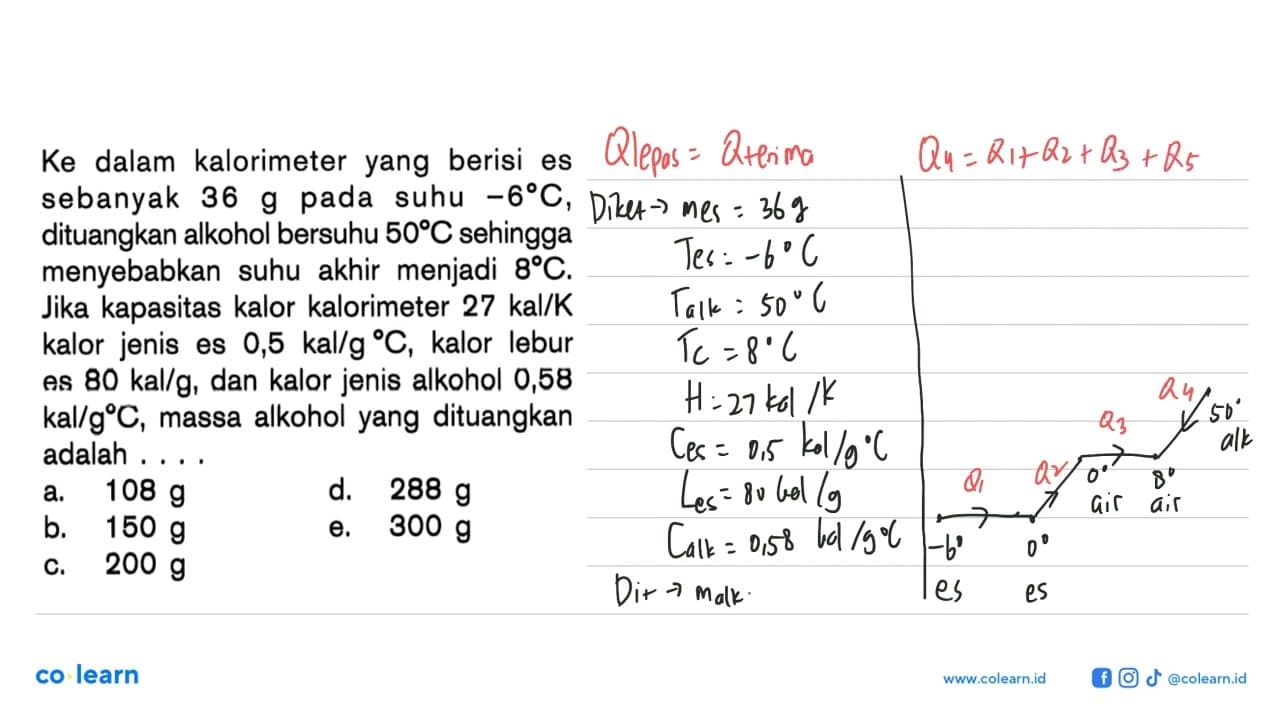 Ke dalam kalorimeter yang berisi es
sebanyak 36 g pada suhu −6°C,
dituangkan alkohol bersuhu 50°C sehingga
menyebabkan suhu akhir menjadi 8°C.
Jika kapasitas kalor kalorimeter 27 kal/K
kalor jenis es 0,5 kal/g °C, kalor lebur
es 80 kal/g, dan kalor jenis alkohol 0,58
kal/g°C, massa alkohol yang dituangkan
adalah . . . .
a. 108 g d. 288 g
b. 150 g e. 300 g
c. 200 g
Qlepas = Qterima
Diket → mes = 36 g
Tes = -6°C
Talk = 50°C
Tc = 8°C
H = 27 kal/K
Ces = 0,5 kal/g°C
Les = 80 kal/g
Calk = 0,58 kal/g°C
Dit → malk.
Q4 = Q1 + Q2 + Q3 + Q5
Q4 50° alk
Q3
Q1 Q2 0° air 8° air
-6° es 0° es
co learn
www.colearn.id @colearn.id